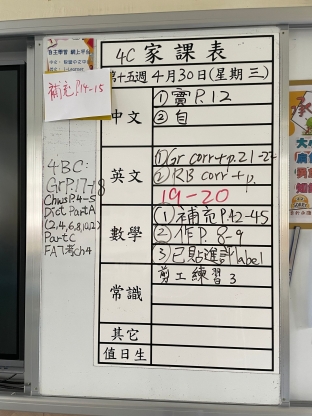 自主學習 網上平台
補充 P.14-15
4BC:
Grp.17-18
Chws P.4-5
Dict Part A
(2,4,6,8,10,12)
Part C
4C 家課表
第十五週 4月30日(星期三)
中文
① 寶 P.12
② 自
英文
① Gr corr + p.21-22
② RB corr + p.
19-20
數學
(1) 補充 P.42-45
(2) 作 P. 8-9
(3) 已貼進評label
常識
剪工練習 3
其它
值日生